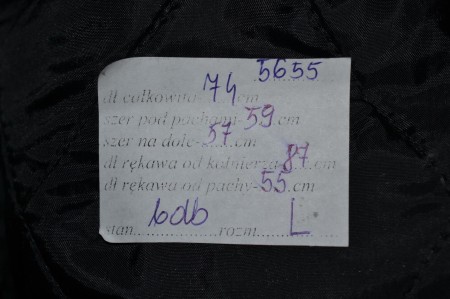 5655
dł całkowita-74cm
szer pod pachami-59cm
szer na dole-57.cm
dł rękawa od kołnierza-87.cm
dł rękawa od pachy-55.cm
stan bdb rozm L